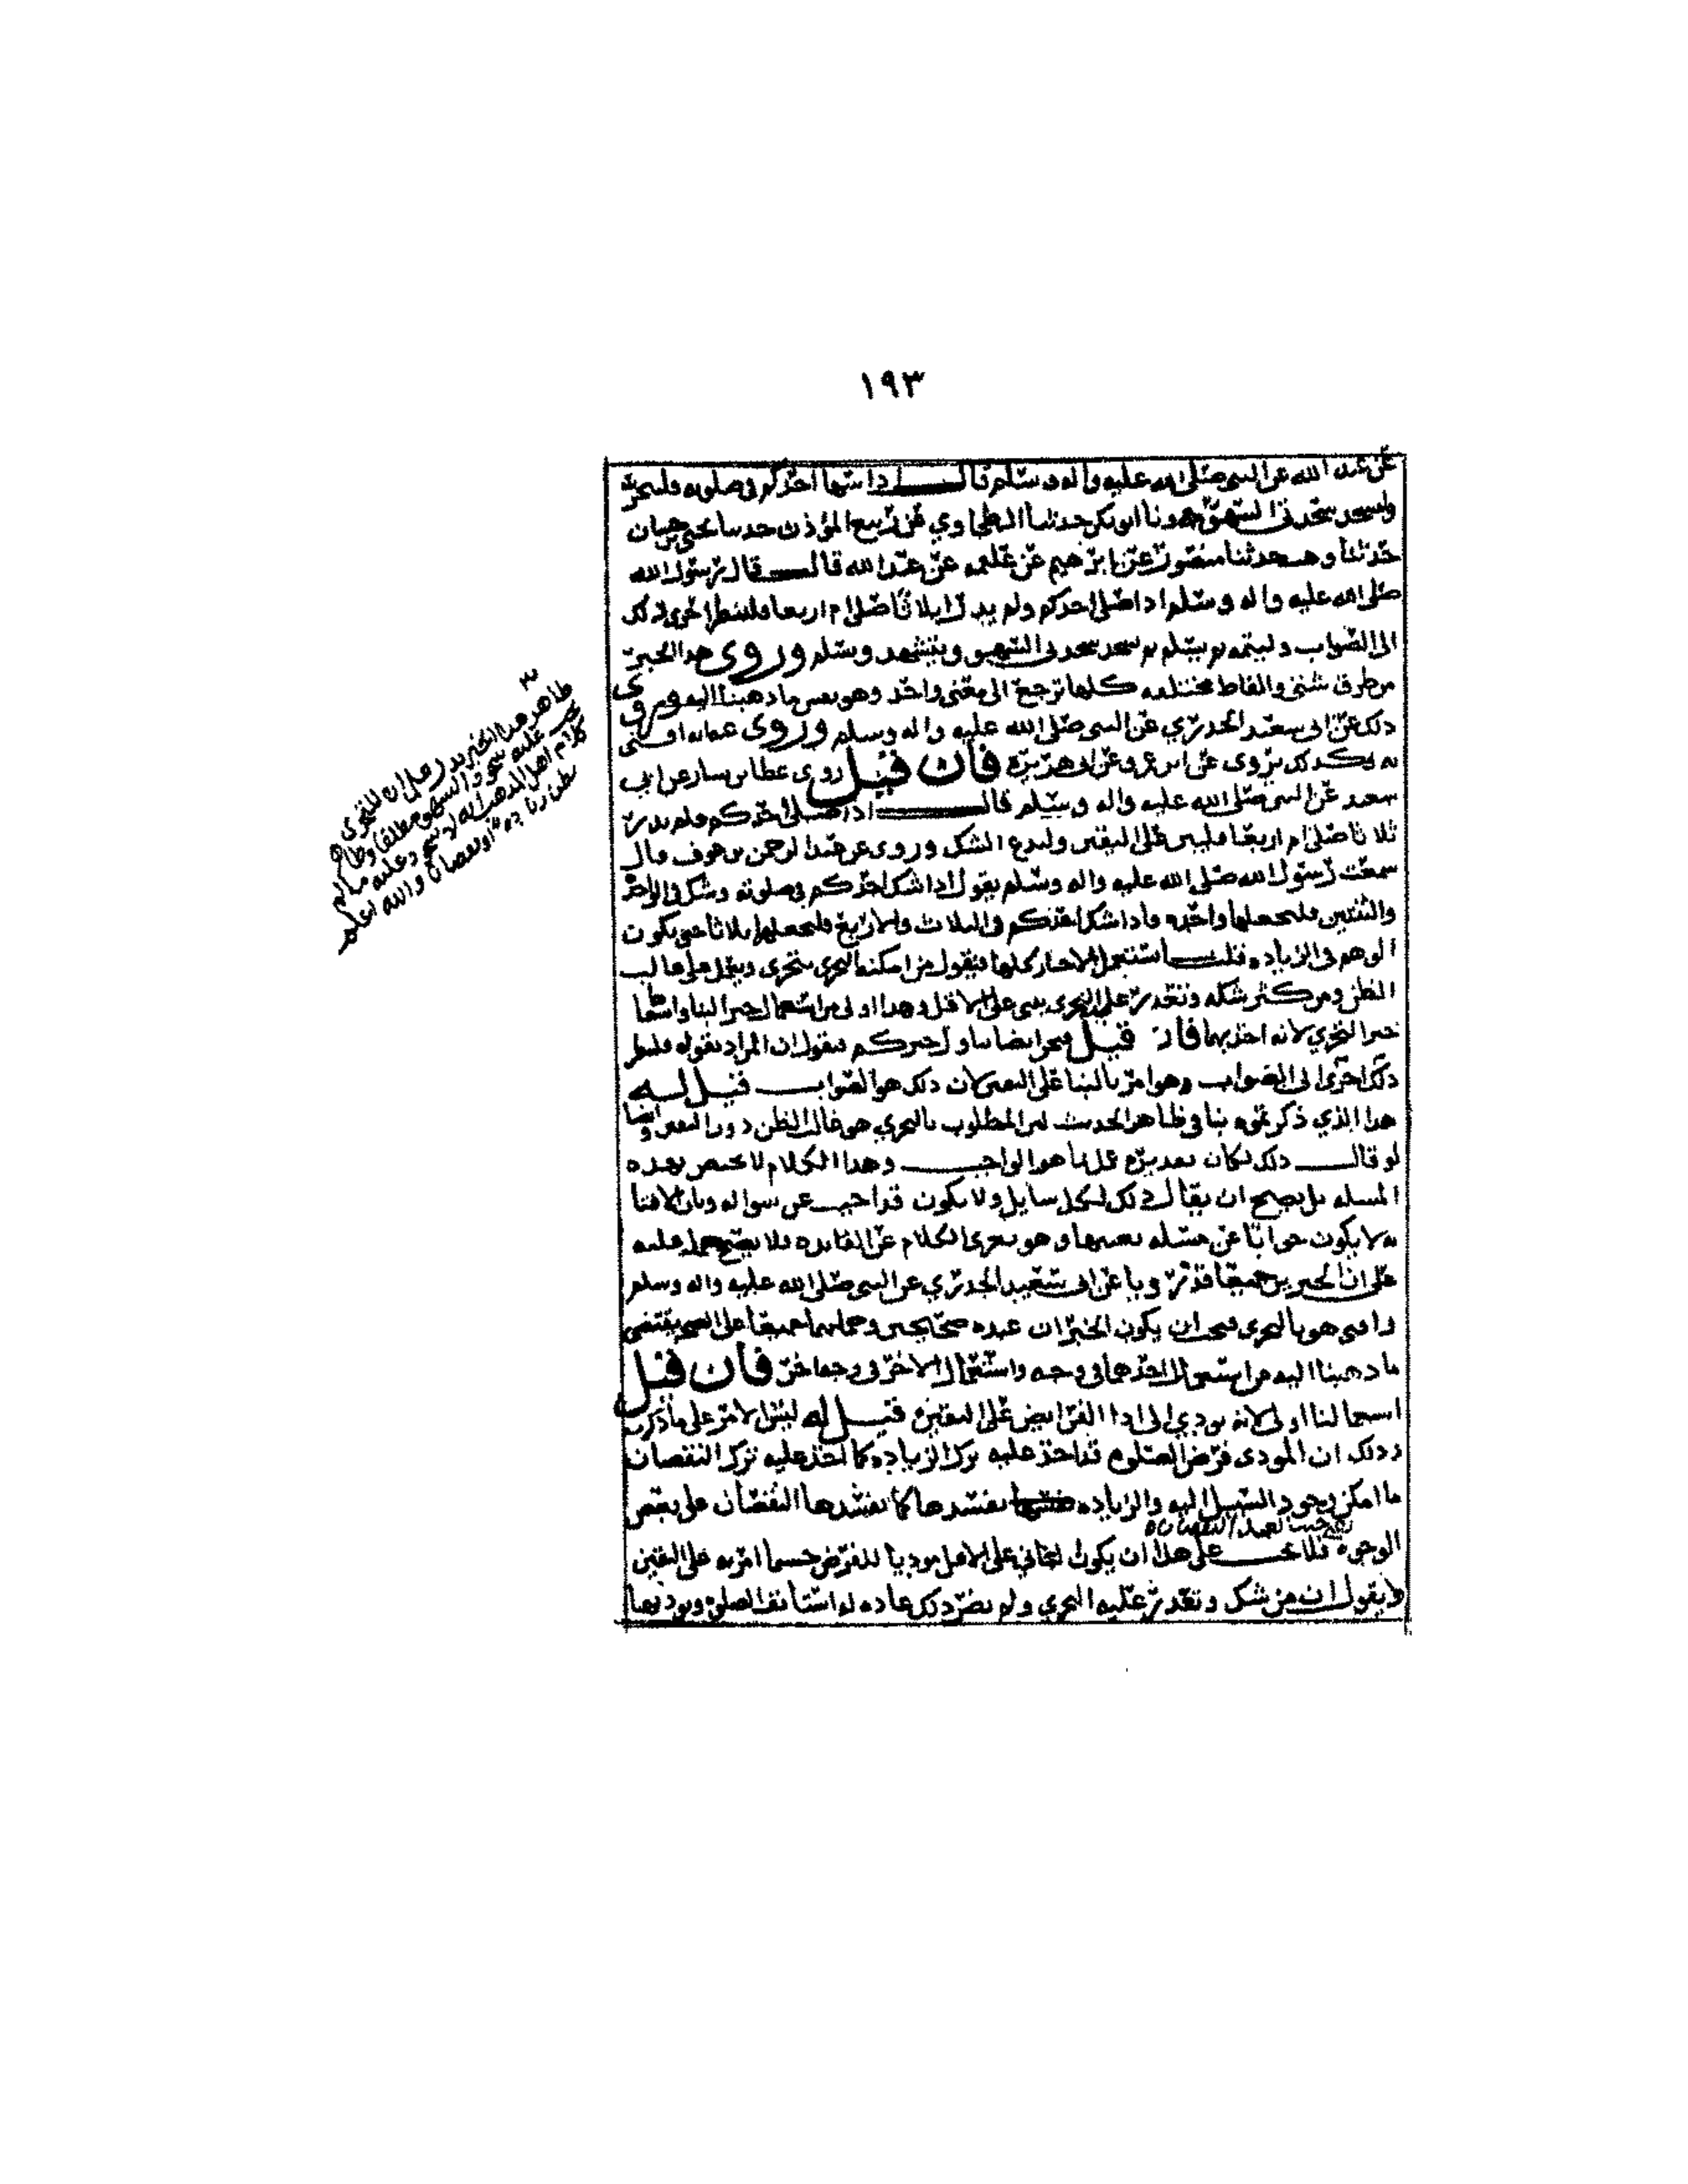 ١٩٣
عن عبد الله عن النبي صلى الله عليه واله وسلم قال اذا سها احدكم في صلوته فليتحر
وليسجد سجدتي السهو ونا ابو بكر حدثنا الطحاوي عن ربيع المؤذن حدثنا يحيى بن حسان
حدثنا وهب حدثنا منصور عن ابرهيم عن علقمه عن عبد الله قال قال رسول الله
صلى الله عليه واله وسلم اذا صلى احدكم ولم يدر اثلاثا صلى ام اربعا فلينظر احرى ذلك
الى الصواب وليتمه ثم يسلم ثم يسجد سجدتي السهو ويتشهد وسلم وروى هذا الخبر
من طرق شتى والفاظ مختلفه كلها ترجع الى معنى واحد وهو نفس ما ذهبنا اليه وروى
ذلك عن ابي سعيد الخدري عن النبي صلى الله عليه واله وسلم وروى عنه انه افتى
به وكذلك يروى عن ابن عمر وعن ابي هريره فان قيل روى عطا بن يسار عن ابي
سعيد عن النبي صلى الله عليه واله وسلم قال اذا صلى احدكم فلم يدر
ثلاثا صلى ام اربعا فليبن على اليقين وليدع الشك وروى عن عبد الرحمن بن عوف قال
سمعت رسول الله صلى الله عليه واله وسلم يقول اذا شك احدكم في صلوته وشك في الواحد
والثنتين فليجعلها واحده واذا شك احدكم في الثلاث والاربع فليجعلها ثلاثا حتى يكون
الوهم في الزياده قلت استعمل الاخبار كلها فيقول من امكنه التحري يتحرى ويعمل على غالب
الظن ومن كثر شكه وتعذر عليه التحري يبني على الاقل وهذا اولى من استعمال خبر البنا واسقاط
خبر التحري لانه اخذ بهما فان قيل فنحن ايضا نتاول خبركم فنقول ان المراد بقوله فلينظر
ذلك احرى الى الصواب وهو امر بالبنا على اليقين لان ذلك هو الصواب قيل له
هذا الذي ذكرتموه ينافي ظاهر الحديث لان المطلوب بالتحري هو غالب الظن دون اليقين وايضا
لو قال ذلك لكان تقديره عمل بما هو الواجب وهذا الكلام لا يختص بهذه
المسله بل يصح ان يقال ذلك لكل سايل ولا يكون قد اجيب عن سواله وبان الافتا
به لا يكون جوابا عن مسئله بعينها وهو يعرى الكلام عن الفايده فلا يصح حمله عليه
على ان الخبرين جميعا قد رويا عن ابي سعيد الخدري عن النبي صلى الله عليه واله وسلم
وافتى هو بالتحري فيجب ان يكون الخبران عنده صحيحين وحملهما جميعا على الصحه يقتضي
ما ذهبنا اليه من استعمال احدهما في وجه واستعمال الاخر في وجه اخر فان قيل
استعمالنا اولى لانه يودي الى ادا الفرايض على اليقين قيل له ليس الامر على ما ذكرت
وذلك ان المودي فرض الصلوة قد اخذ عليه ترك الزياده كما اخذ عليه ترك النقصان
ما امكن وجود السبيل اليه والزياده تفسدها كما يفسدها النقصان على بعض
الوجوه فلا يجب على هذا ان يكون الباني على الاقل موديا للفرض حسبما امر به على اليقين
ويقول ان من شك وتعذر عليه التحري ولم يصر ذلك عاده له استانف الصلوة ويوديها
ظاهر هذا الخبر يدل على ان المتحري
يجب عليه سجود السهو مطلقا وظاهر
كلام اهل المذهب انه لا سجود عليه ما لم
يظن زيادة او نقصانا والله اعلم